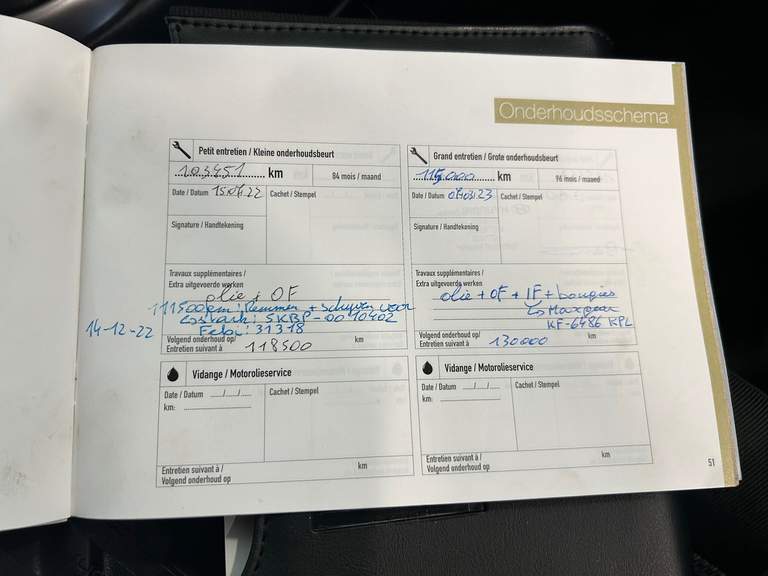 Onderhoudsschema
Petit entretien / Kleine onderhoudsbeurt
103451 km
84 mois / maand
Date / Datum 15.04.22
Cachet / Stempel
Signature / Handtekening
Travaux supplémentaires /
Extra uitgevoerde werken
olie + OF
111500km: Remmen + schijven voor
↳ Stark: SKBP-0010402
Febi: 31318
14-12-22
Volgend onderhoud op/
Entretien suivant à 118500 km
Grand entretien / Grote onderhoudsbeurt
115000 km
96 mois / maand
Date / Datum 07.03.23
Cachet / Stempel
Signature / Handtekening
Travaux supplémentaires /
Extra uitgevoerde werken
olie + OF + IF + bougies
↳ Maxgear
KF-6486 KPL
Volgend onderhoud op/
Entretien suivant à 130000 km
Vidange / Motorolieservice
Date / Datum __/__/__
km:
Cachet / Stempel
Entretien suivant à /
Volgend onderhoud op
km
Vidange / Motorolieservice
Date / Datum __/__/__
km:
Cachet / Stempel
Entretien suivant à /
Volgend onderhoud op
km
51